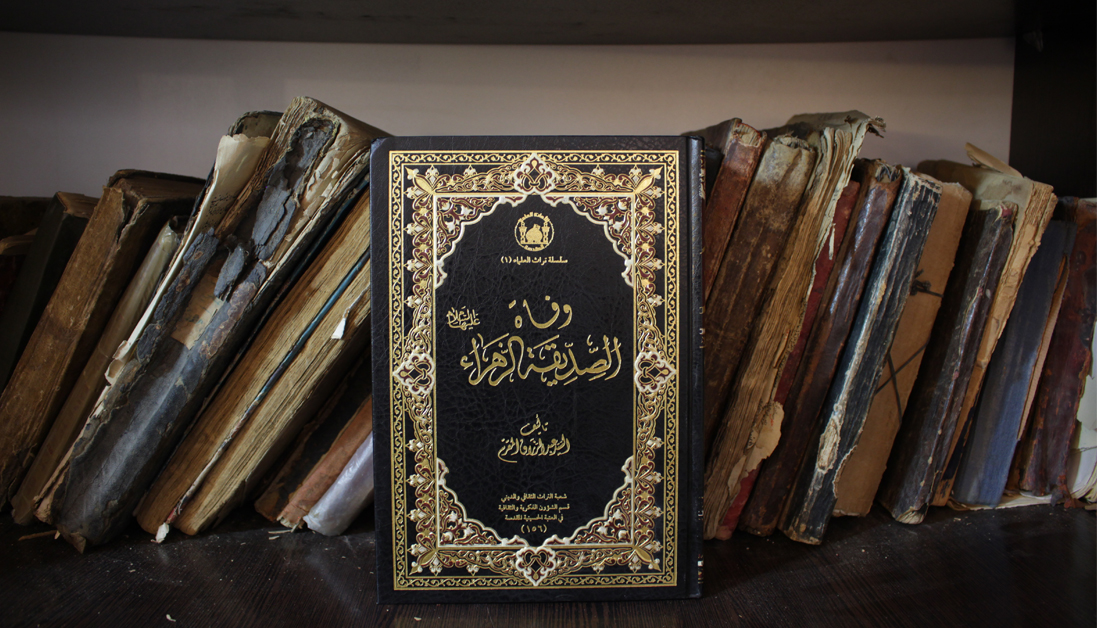 سلسلة تراث العلماء (١)
وفاة
الصّدّيقة الزّهراء عليها السلام
تأليف
السيد عبد الرزاق المقرم
شعبة التراث الثقافي والديني
قسم الشؤون الفكرية والثقافية
في العتبة الحسينية المقدسة
(١٥٦)